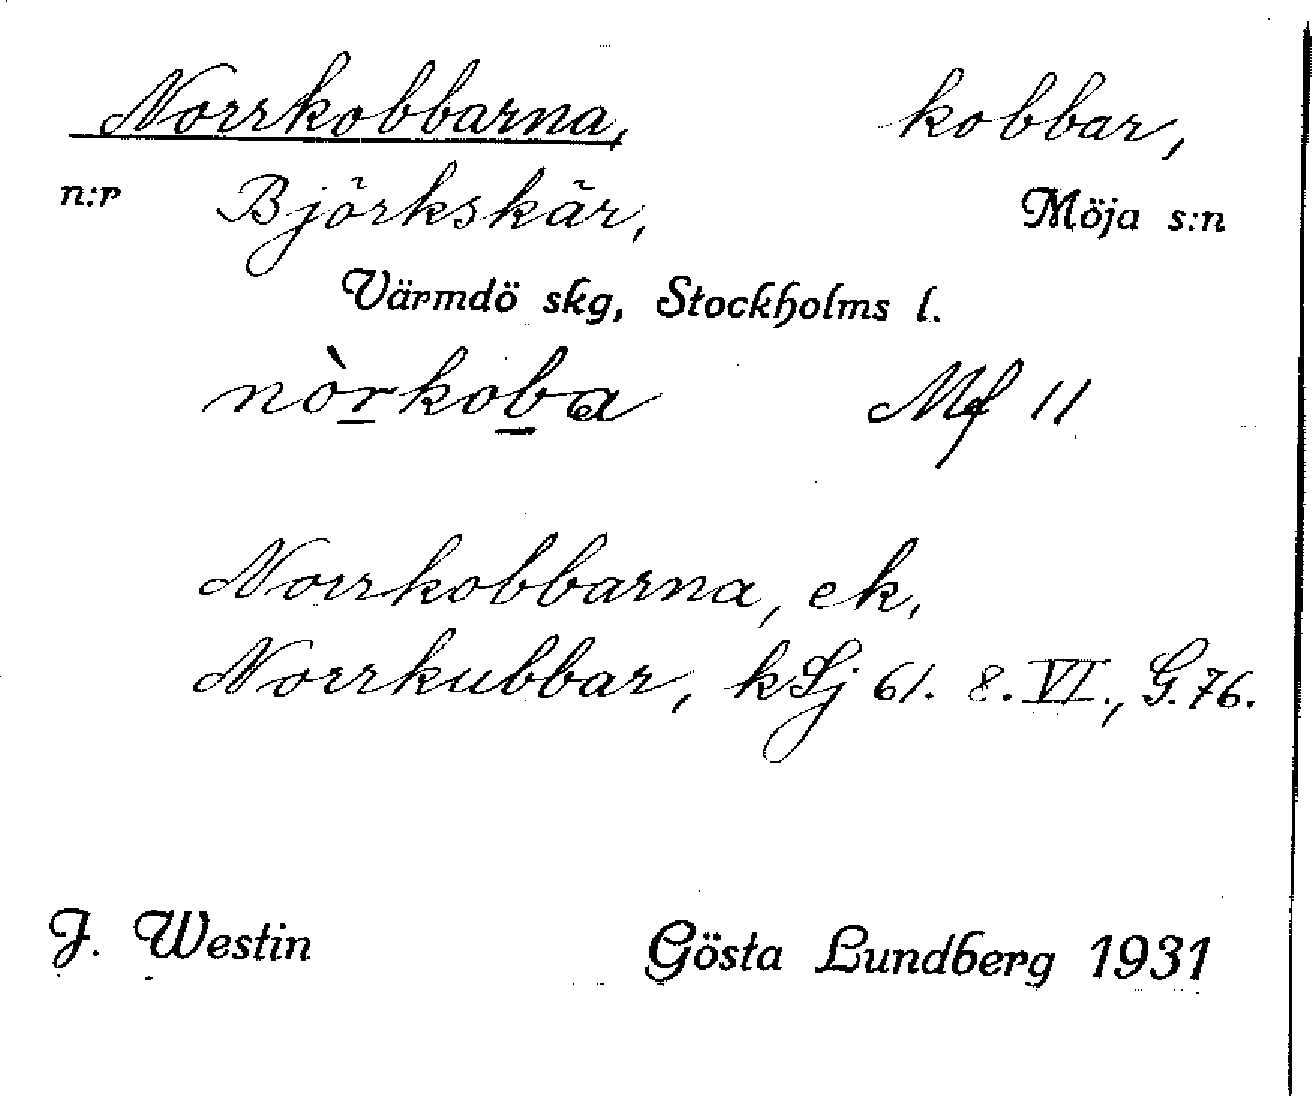 Norrkobbarna, kobbar,
n:r Björkskär, Möja s:n
Värmdö skg, Stockholms l.
nòrkoba Mf 11
Norrkobbarna, ek,
Norrkubbar, kSj 61. 8. VI., G. 76.
J. Westin Gösta Lundberg 1931